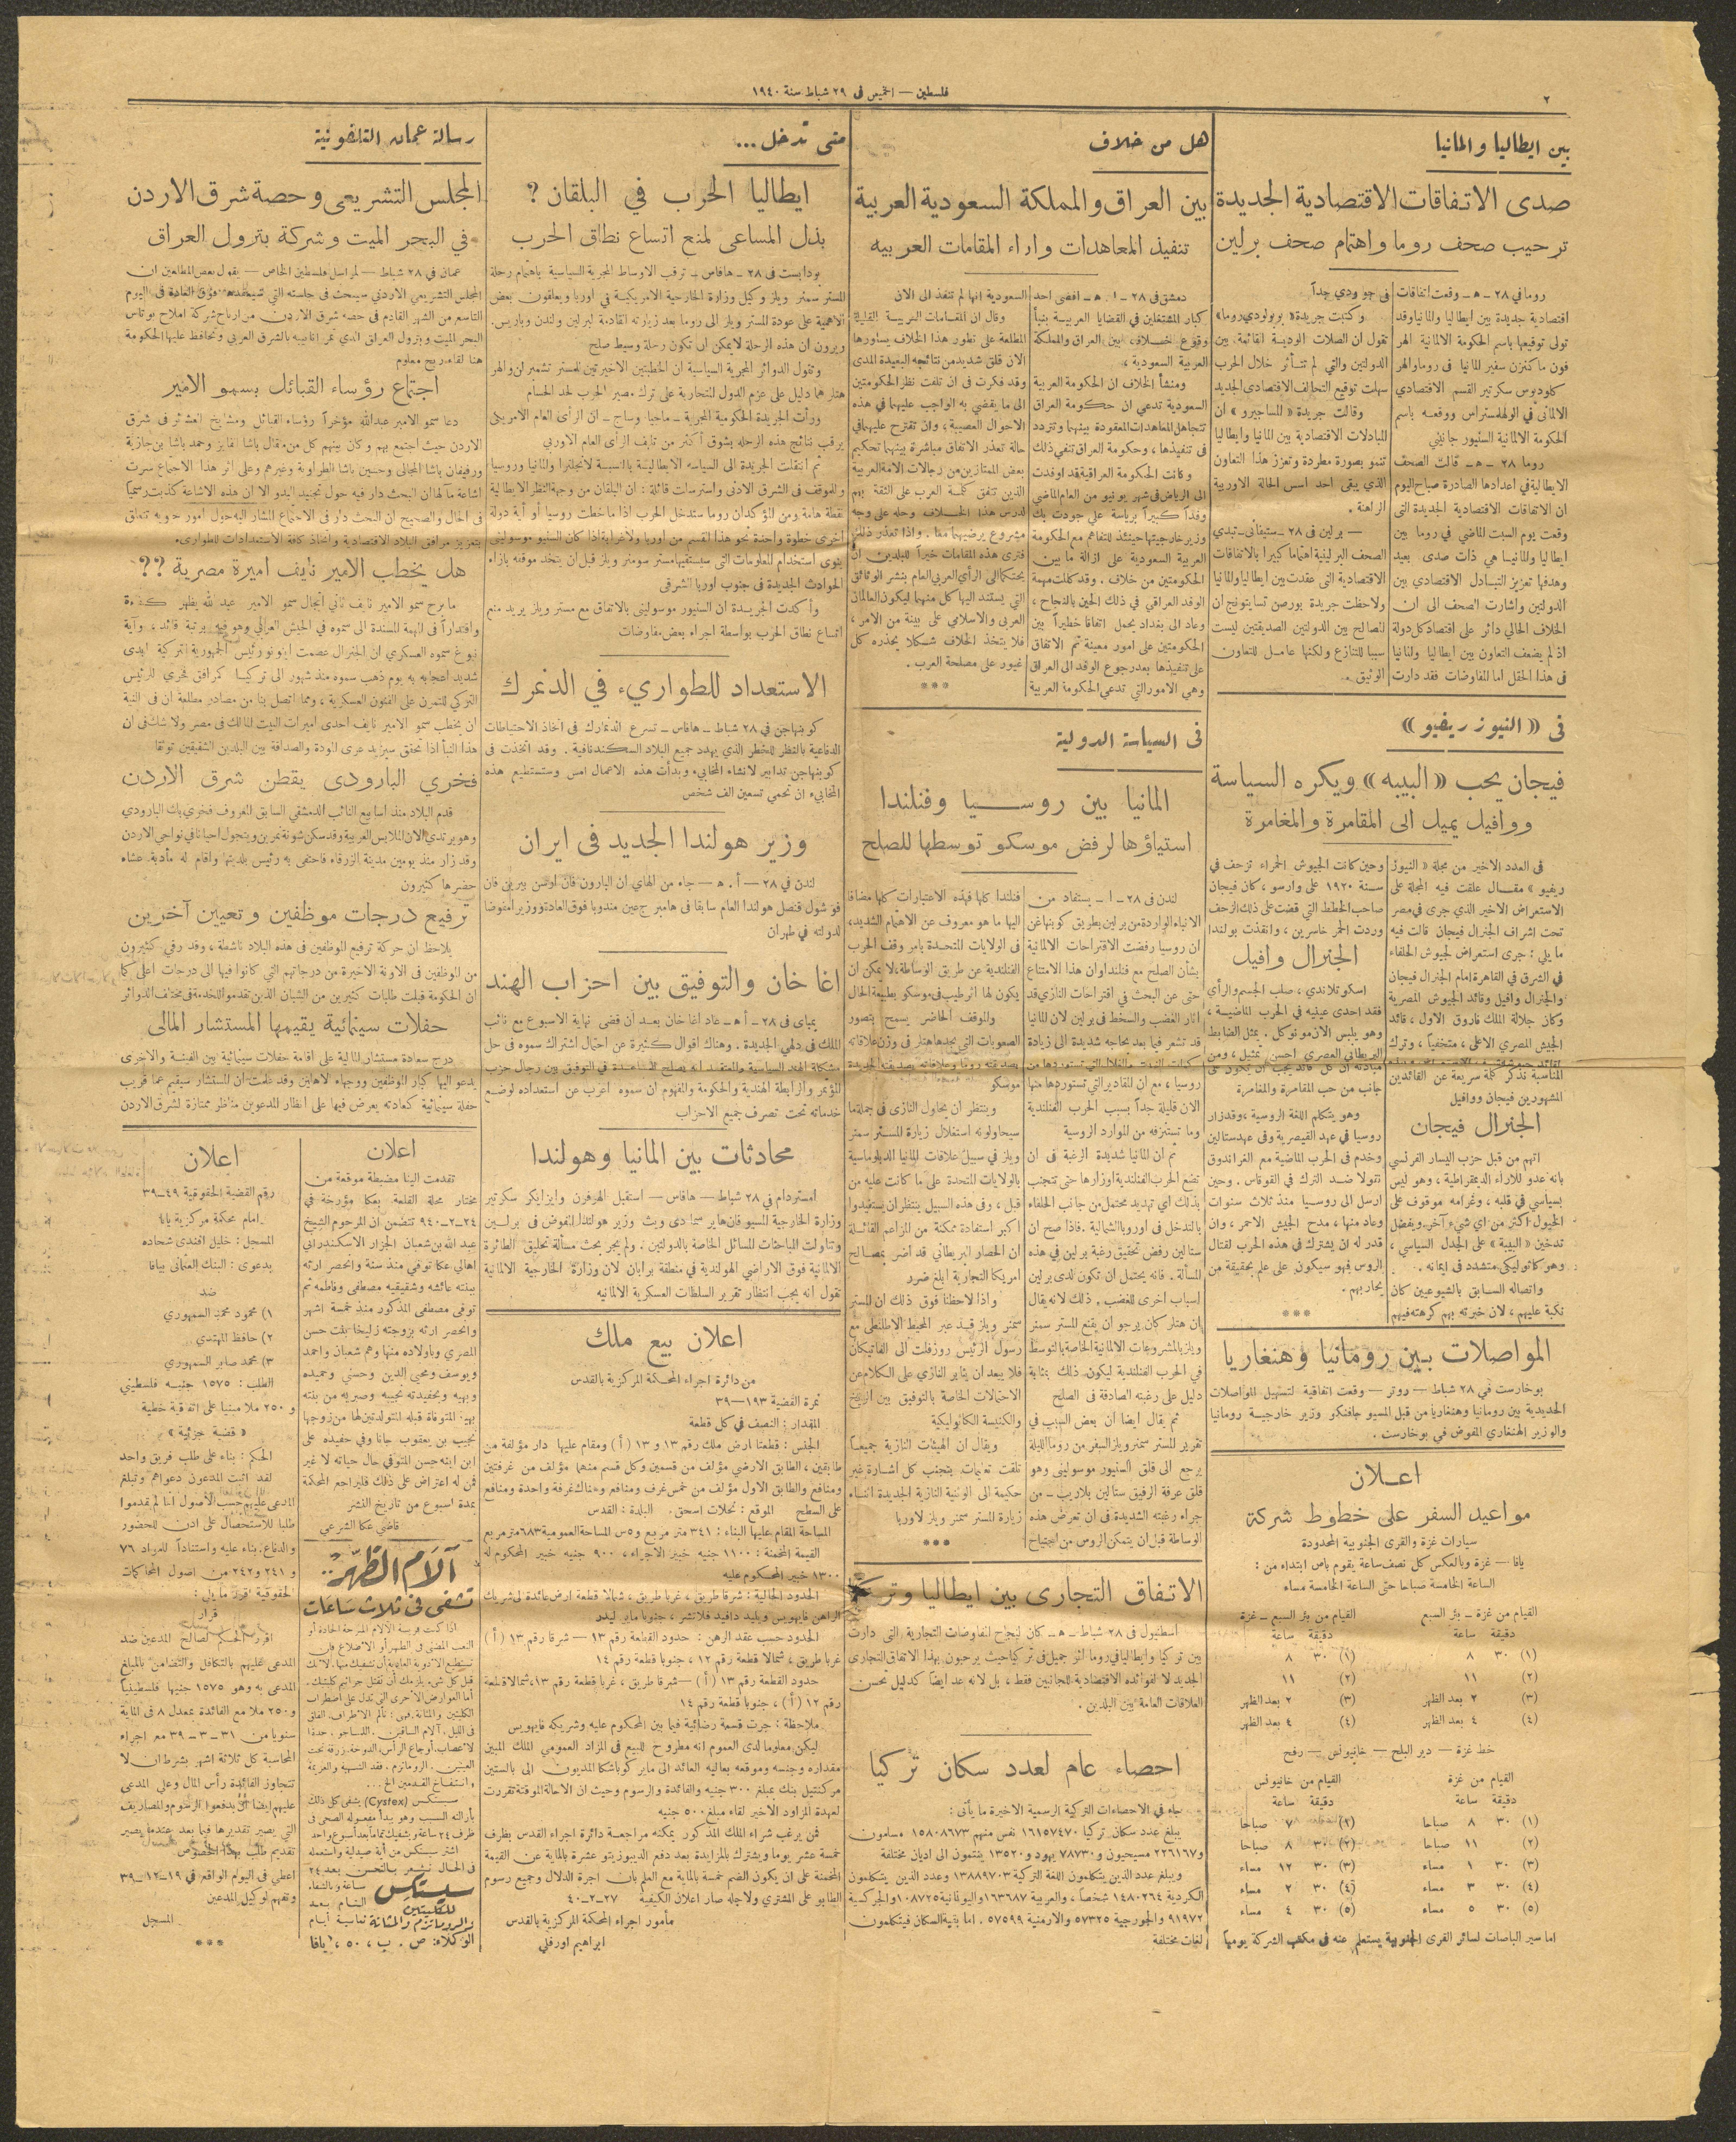 ٢
فلسطين — الخميس في ٢٩ شباط سنة ١٩٤٠
بين ايطاليا والمانيا
صدى الاتفاقات الاقتصادية الجديدة
ترحيب صحف روما واهتمام صحف برلين
روما في ٢٨ – ه – وقعت اتفاقات
اقتصادية جديدة بين ايطاليا والمانيا وقد
تولى توقيعها باسم الحكومة الالمانية الهر
فون ماكنزن سفير المانيا في روما والهر
كلوديوس سكرتير القسم الاقتصادي
الالماني في الولهلمستراس ووقعه باسم
الحكومة الالمانية السنيور جانيني
روما ٢٨ – ه – قالت الصحف
الايطالية في اعدادها الصادرة صباح اليوم
ان الاتفاقات الاقتصادية الجديدة التي
وقعت يوم السبت الماضي في روما بين
ايطاليا والمانيا هي ذات صدى بعيد
وهدفها تعزيز التبادل الاقتصادي بين
الدولتين واشارت الصحف الى ان
الخلاف الحالي دائر على اقتصاد كل دولة
اذ لم يضعف التعاون بين ايطاليا والمانيا
في هذا الحقل اما المفاوضات فقد دارت
في جو ودي جداً
وكتبت جريدة « بوبولو دي روما »
تقول ان الصلات الودية القائمة بين
الدولتين والتي لم تتأثر خلال الحرب
سهلت توقيع التحالف الاقتصادي الجديد
وقالت جريدة « المساجيرو » ان
المبادلات الاقتصادية بين المانيا وايطاليا
تنمو بصورة مطردة وتعزز هذا التعاون
الذي يبقى احد اسس الحالة الاوربية
الراهنة .
— برلين في ٢٨ – ستيفاني – تبدي
الصحف البرلينية اهتماما كبيرا بالاتفاقات
الاقتصادية التي عقدت بين ايطاليا والمانيا
ولاحظت جريدة بورصن تسايتونج ان
المصالح بين الدولتين الصديقتين ليست
سببا للتنازع ولكنها عامل للتعاون
الوثيق .
في « النيوز ريفيو »
فيجان يحب « البيبه » ويكره السياسة
ووافيل يميل الى المقامرة والمغامرة
في العدد الاخير من مجلة « النيوز
ريفيو » مقال علقت فيه المجلة على
الاستعراض الاخير الذي جرى في مصر
تحت اشراف الجنرال فيجان قالت فيه
ما يلي : جرى استعراض لجيوش الحلفاء
في الشرق في القاهرة امام الجنرال فيجان
والجنرال وافيل وقائد الجيوش المصرية
وكان جلالة الملك فاروق الاول ، قائد
الجيش المصري الاعلى ، متخفياً ، وترك
المناسبة نذكر كلمة سريعة عن القائدين
المشهورين فيجان ووافيل
الجنرال فيجان
اتهم من قبل حزب اليسار الفرنسي
بانه عدو للاراء الديمقراطية ، وهو ليس
بسياسي في قلبه ، وغرامه موقوف على
الخيول اكثر من اي شيء آخر ويفضل
تدخين « البيبة » على الجدل السياسي ،
وهو كاثوليكي متشدد في ايمانه .
واتصاله السابق بالشيوعيين كان
نكبة عليهم ، لان خبرته بهم كرهته فيهم
وحين كانت الجيوش الحمراء تزحف في
سنة ١٩٢٠ على وارسو ، كان فيجان
صاحب الخطط التي قضت على ذلك الزحف
وردت الحمر خاسرين ، وانقذت بولندا
الجنرال وافيل
اسكوتلاندي ، صلب الجسم والرأي
فقد احدى عينيه في الحرب الماضية ،
وهو يلبس الازمونوكل . يمثل الضابط
البريطاني العصري احسن تمثيل ، ومن
مبادئه ان كل قائد يجب ان يكون على
جانب من حب المقامرة والمغامرة
وهو يتكلم اللغة الروسية ، وقد زار
روسيا في عهد القيصرية وفي عهد ستالين
وخدم في الحرب الماضية مع الغراندوق
نقولا ضد الترك في القوقاس . وحين
ارسل الى روسيا منذ ثلاث سنوات
وعاد منها ، مدح الجيش الاحمر ، وان
قدر له ان يشترك في هذه الحرب لقتال
الروس فهو سيكون على علم بحقيقة من
يحاربهم .
***
المواصلات بين رومانيا وهنغاريا
بوخارست في ٢٨ شباط – روتر – وقعت اتفاقية لتسهيل المواصلات
الحديدية بين رومانيا وهنغاريا من قبل المسيو جافنكو وزير خارجية رومانيا
والوزير الهنغاري المفوض في بوخارست .
اعلان
مواعيد السفر على خطوط شركة
سيارات غزة والقرى الجنوبية المحدودة
يافا – غزة وبالعكس كل نصف ساعة يقوم باص ابتداء من :
الساعة الخامسة صباحا حتى الساعة الخامسة مساء
القيام من غزة – بئر السبع القيام من بئر السبع – غزة
دقيقة ساعة دقيقة ساعة
(١) ٣٠ ٨ (١) ٣٠ ٨
(٢) ١١ (٢) ١١
(٣) ٢ بعد الظهر (٣) ٢ بعد الظهر
(٤) ٤ بعد الظهر (٤) ٤ بعد الظهر
خط غزة — دير البلح — خانيونس — رفح
القيام من غزة القيام من خانيونس
دقيقة ساعة دقيقة ساعة
(١) ٣٠ ٨ صباحا (٢) ٧ صباحا
(٢) ١١ صباحا (٢) ٣٠ ٨ صباحا
(٣) ٣٠ ١ مساء (٣) ٣٠ ١٢ مساء
(٤) ٣٠ ٣ مساء (٤) ٣٠ ٢ مساء
(٥) ٣٠ ٥ مساء (٥) ٣٠ ٤ مساء
اما سير الباصات لسائر القرى الجنوبية يستعلم عنه في مكتب الشركة يوميا
هل من خلاف
بين العراق والمملكة السعودية العربية
تنفيذ المعاهدات واراء المقامات العربيه
دمشق في ٢٨ – ا . ه – افضى احد
كبار المشتغلين في القضايا العربية بنبأ
وقوع خلاف بين العراق والمملكة
العربية السعودية ،
ومنشأ الخلاف ان الحكومة العربية
السعودية تدعي ان حكومة العراق
تتجاهل المعاهدات المعقودة بينهما وتتردد
في تنفيذها ، وحكومة العراق تنفي ذلك
وكانت الحكومة العراقية قد اوفدت
الى الرياض في شهر يونيو من العام الماضي
وفداً كبيراً برياسة علي جودت بك
وزير خارجيتها حينئذ للتفاهم مع الحكومة
العربية السعودية على ازالة ما بين
الحكومتين من خلاف . وقد كللت مهمة
الوفد العراقي في ذلك الحين بالنجاح ،
وعاد الى بغداد يحمل اتفاقا خطيراً بين
الحكومتين على امور معينة تم الاتفاق
على تنفيذها بعد رجوع الوفد الى العراق
وهي الامور التي تدعي الحكومة العربية
السعودية انها لم تنفذ الى الان
وقال ان المقامات العربية القليلة
المطلعة على تطور هذا الخلاف يساورها
الان قلق شديد من نتائجه البعيدة المدى
وقد فكرت في ان تلفت نظر الحكومتين
الى ما يقضي به الواجب عليهما في هذه
الاحوال العصيبة ، وان تقترح عليهما في
حالة تعذر الاتفاق مباشرة بينهما تحكيم
بعض الممتازين من رجالات الامة العربية
الذين تتفق كلمة العرب على الثقة بهم
لدرس هذا الخلاف وحله على وجه
مشروع يرضيهما معا . واذا تعذر ذلك
فترى هذه المقامات خيراً للبلدين ان
يحتكما الى الرأي العربي العام بنشر الوثائق
التي يستند اليها كل منهما ليكون العالمان
العربي والاسلامي على بينة من الامر ،
فلا يتخذ الخلاف شكلا يحذره كل
غيور على مصلحة العرب .
***
في السياسة الدولية
المانيا بين روسيا وفنلندا
استياؤها لرفض موسكو توسطها للصلح
لندن في ٢٨ – ا – يستفاد من
الانباء الواردة من برلين بطريق كوبنهاغن
ان روسيا رفضت الاقتراحات الالمانية
بشأن الصلح مع فنلندا وان هذا الامتناع
حتى عن البحث في اقتراحات النازي قد
اثار الغضب والسخط في برلين لان المانيا
قد تشعر فيما بعد بحاجه شديدة الى زيادة
روسيا ، مع ان المقادير التي تستوردها منها
الان قليلة جداً بسبب الحرب الفنلندية
وما تستنزفه من الموارد الروسية
ثم ان المانيا شديدة الرغبة في ان
تضع الحرب الفنلندية اوزارها حتى تتجنب
بذلك اي تهديد محتمل من جانب الحلفاء
بالتدخل في اوروبا الشمالية . فاذا صح ان
ستالين رفض تحقيق رغبة برلين في هذه
المسألة . فانه يحتمل ان تكون لدى برلين
اسباب اخرى للغضب . ذلك لانه يقال
ان هتلر كان يرجو ان يقنع المستر سمنر
ويلز بالمشروعات الالمانية الخاصة بالتوسط
في الحرب الفنلندية ليكون ذلك بمثابة
دليل على رغبته الصادقة في الصلح
ثم يقال ايضا ان بعض السبب في
تقرير المستر سمنر ويلز السفر من روما الليلة
يرجع الى قلق السنيور موسوليني وهو
قلق عرفه الرفيق ستالين بلا ريب – من
جراء رغبته الشديدة في ان تعرض هذه
الوساطة قبل ان يتمكن الروس من اجتياح
فنلندا كلها فهذه الاعتبارات كلها مضافا
اليها ما هو معروف عن الاهتمام الشديد،
في الولايات المتحدة بامر وقف الحرب
الفنلندية عن طريق الوساطة، لا يمكن ان
يكون لها اثر طيب في موسكو بطبيعة الحال
والموقف الحاضر يسمح بتصور
الصعوبات التي يجدها هتلر في وزن علاقاته
بصديقته روما وعلاقاته بصديقته الجديدة
موسكو
وينتظر ان يحاول النازي في جملة ما
سيحاولونه استغلال زيارة المستر سمنر
ويلز في سبيل علاقات المانيا الدبلوماسية
بالولايات المتحدة على ما كانت عليه من
قبل ، وفي هذه السبيل ينتظر ان يستفيدوا
اكبر استفادة ممكنة من المزاعم القائلة
ان الحصار البريطاني قد اضر بمصالح
امريكا التجارية ابلغ ضرر
واذا لاحظنا فوق ذلك ان المستر
سمنر ويلز قد عبر المحيط الاطلنطي مع
رسول الرئيس روزفلت الى الفاتيكان
فلا يبعد ان يثابر النازي على الكلام عن
الاحتمالات الخاصة بالتوفيق بين الريخ
والكنيسة الكاثوليكية
ويقال ان الهيئات النازية جميعها
تلقت تعليمات بتجنب كل اشارة غير
حكيمة الى الوثنية النازية الجديدة اثناء
زيارة المستر سمنر ويلز لاوربا
***
الاتفاق التجاري بين ايطاليا وتركيا
اسطنبول في ٢٨ شباط – ه – كان لنجاح المفاوضات التجارية التي دارت
بين تركيا وايطاليا في روما اثر جميل في تركيا حيث يرحبون بهذا الاتفاق التجاري
الجديد لا لفوائده الاقتصادية للجانبين فقط ، بل لانه عد ايضا كدليل تحسن
العلاقات العامة بين البلدين .
احصاء عام لعدد سكان تركيا
جاء في الاحصاءات التركية الرسمية الاخيرة ما يأتي :
يبلغ عدد سكان تركيا ١٦١٥٧٤٧٠ نفس منهم ١٥٨٠٨٦٧٣ مسلمون
و٢٢٦١٦٧ مسيحيون و٧٨٧٣٠ يهود و١٣٥٢٠ ينتمون الى اديان مختلفة
ويبلغ عدد الذين يتكلمون اللغة التركية ١٣٨٨٩٧٠٣ وعدد الذين يتكلمون
الكردية ١٤٨٠٢٦٤ شخصا ، والعربية ١٦٣٦٨٧ واليونانية ١٠٨٧٢٥ والجركسية
٩١٩٧٢ والجورجية ٥٧٣٢٥ والارمنية ٥٧٥٩٩ . اما بقية السكان فيتكلمون
لغات مختلفة
متى تدخل ...
ايطاليا الحرب في البلقان ؟
بذل المساعى لمنع اتساع نطاق الحرب
بودابست في ٢٨ – هافاس – ترقب الاوساط المجرية السياسية باهتمام رحلة
المستر سمنر ويلز وكيل وزارة الخارجية الامريكية في اوربا ويعلقون بعض
الاهمية على عودة المستر ويلز الى روما بعد زيارته القادمة لبرلين ولندن وباريس.
ويرون ان هذه الرحلة لا يمكن ان تكون رحلة وسيط صلح
وتقول الدوائر المجرية السياسية ان الخطبتين الاخيرتين للمستر تشمبرلن والهر
هتلر هما دليل على عزم الدول المتحاربة على ترك مصير الحرب لحد الحسام
ورأت الجريدة الحكومية المجرية – ماجيا وساج – ان الرأى العام الامريكي
يرقب نتائج هذه الرحلة بشوق اكثر من تلهف الرأى العام الاوربي
ثم انتقلت الجريدة الى السياسة الايطالية بالنسبة لانجلترا والمانيا وروسيا
والموقف في الشرق الادنى واسترسلت قائلة : ان البلقان من وجهة النظر الايطالية
نقطة هامة ومن المؤكد ان روما ستدخل الحرب اذا ما خطت روسيا أو أية دولة
أخرى خطوة واحدة نحو هذا القسم من اوربا ولا غرابة اذا كان السنيور موسوليني
ينوي استخدام المعلومات التي سيستقيها مستر سومنر ويلز قبل ان يتخذ موقفه بازاء
الحوادث الجديدة في جنوب اوربا الشرقي
وأكدت الجريدة ان السنيور موسوليني بالاتفاق مع مستر ويلز يريد منع
اتساع نطاق الحرب بواسطة اجراء بعض مفاوضات
الاستعداد للطواريء في الدنمرك
كوبنهاجن في ٢٨ شباط – هافاس – تسرع الدنمارك في اتخاذ الاحتياطات
الدفاعية بالنظر للخطر الذي يهدد جميع البلاد السكندنافية . وقد اتخذت في
كوبنهاجن تدابير لانشاء المخابيء وبدأت هذه الاعمال امس وستستطيع هذه
المخابيء ان تحمي تسعين الف شخص
وزير هولندا الجديد في ايران
لندن في ٢٨ – أ . ه – جاء من الهاي ان البارون فان اوسن بيربن فان
فورشول قنصل هولندا العام سابقا في هامبرج عين مندوبا فوق العادة ووزيرا مفوضا
لدولته في طهران
اغا خان والتوفيق بين احزاب الهند
بمباى في ٢٨ – أ ه – عاد اغا خان بعد أن قضى نهاية الاسبوع مع نائب
الملك في دلهي الجديدة . وهناك اقوال كثيرة عن احتمال اشتراك سموه في حل
مشكلة الهند السياسية والمعتقد انه يصلح للمساعدة في التوفيق بين رجال حزب
المؤتمر والرابطة الهندية والحكومة والمفهوم ان سموه اعرب عن استعداده لوضع
خدماته تحت تصرف جميع الاحزاب
محادثات بين المانيا وهولندا
امستردام في ٢٨ شباط – هافاس – استقبل الهرفون وايزايكر سكرتير
وزارة الخارجية المسيو فان هاير سما دي ويث وزير هولندا المفوض في برلين
وتناولت المباحثات المسائل الخاصة بالدولتين . ولم يجر بحث مسألة تحليق الطائرة
الالمانية فوق الاراضي الهولندية في منطقة برابان لان وزارة الخارجية الالمانية
تقول انه يجب انتظار تقرير السلطات العسكرية الالمانيه
اعلان بيع ملك
من دائرة اجراء المحكمة المركزية بالقدس
نمرة القضية ١٩٣—٣٩
المقدار : النصف في كل قطعة
الجنس : قطعتا ارض ملك رقم ١٣ و١٣ (أ) ومقام عليها دار مؤلفة من
طابقين ، الطابق الارضي مؤلف من قسمين وكل قسم منهما مؤلف من غرفتين
ومنافع والطابق الاول مؤلف من خمس غرف ومنافع وهناك غرفة واحدة ومنافع
على السطح الموقع : نحلات اسحق . البلدة : القدس
المساحة المقام عليها البناء : ٣٤١ متر مربع و٥٠ س المساحة العمومية ٦٨٣ متر مربع
القيمة المخمنة : ١١٠٠ جنيه خبير الاجراء ، ٩٠٠ جنيه خبير المحكوم له
١٣٠٠ خبير المحكوم عليه
الحدود الحالية : شرقا طريق ، غربا طريق ، شمالا قطعة ارض عائدة لشريك
الراهن فايهويس ويليد دافيد فلانشر ، جنوبا ماير ليدر
الحدود حسب عقد الرهن : حدود القطعة رقم ١٣ — شرقا رقم ١٣ (أ)
غربا طريق ، شمالا قطعة رقم ١٢ ، جنوبا قطعة رقم ١٤
حدود القطعة رقم ١٣ (أ) — شرقا طريق ، غربا قطعة رقم ١٣، شمالا قطعة
رقم ١٢ (أ) ، جنوبا قطعة رقم ١٤
ملاحظة : جرت قسمة رضائية فيما بين المحكوم عليه وشريكه فايهويس
ليكن معلوما لدى العموم انه مطروح للبيع في المزاد العمومي الملك المبين
مقداره وجنسه وموقعه بعاليه العائد الى ماير كوباشكا المديون الى بالستين
مركنتيل بنك بمبلغ ٣٠٠ جنيه والفائدة والرسوم وحيث ان الاحالة الموقتة تقررت
لعهدة المزاود الاخير لقاء مبلغ ٥٠٠ جنيه
فمن يرغب شراء الملك المذكور يمكنه مراجعة دائرة اجراء القدس بظرف
خمسة عشر يوما ويشترك بالمزايدة بعد دفع الديبوزيتو عشرة بالماية عن القيمة
المخمنة على ان يكون الضم خمسة بالماية مع العلم بان اجرة الدلال وجميع رسوم
الطابو على المشتري ولاجله صار اعلان الكيفية ٢٧–٢–٤٠
مأمور اجراء المحكمة المركزية بالقدس
ابراهيم اورفلي
رسالة عمان التلفونية
المجلس التشريعي وحصة شرق الاردن
في البحر الميت وشركة بترول العراق
عمان في ٢٨ شباط – لمراسل فلسطين الخاص – يقول بعض المطلعين ان
المجلس التشريعي الاردني سيبحث في جلسته التي سيعقدها فوق العادة في اليوم
التاسع من الشهر القادم في حصة شرق الاردن من ارباح شركة املاح بوتاس
البحر الميت وبترول العراق الذي تمر انابيبه بالشرق العربي وتحافظ عليها الحكومة
هنا لقاء ربح معلوم
اجتماع رؤساء القبائل بسمو الامير
دعا سمو الامير عبدالله مؤخراً رؤساء القبائل ومشايخ العشائر في شرق
الاردن حيث اجتمع بهم وكان بينهم كل من مثقال باشا الفايز وحمد باشا بن جازية
ورفيفان باشا المجالي وحسين باشا الطراونة وغيرهم وعلى اثر هذا الاجتماع سرت
اشاعة مآلها ان البحث دار فيه حول تجنيد البدو الا ان هذه الاشاعة كذبت رسميا
في الحال والصحيح ان البحث دار في الاجتماع المشار اليه حول امور حيوية تتعلق
بتعزيز مرافق البلاد الاقتصادية واتخاذ كافة الاستعدادات للطوارىء.
هل يخطب الامير نايف اميرة مصرية ؟؟
ما برح سمو الامير نايف ثاني انجال سمو الامير عبدالله يظهر كفاءة
واقتداراً في المهمة المسندة الى سموه في الجيش العراقي وهو فيه برتبة قائد ، وآية
نبوغ سموه العسكري ان الجنرال عصمت اينونو رئيس الجمهورية التركية ابدى
شديد اعجابه به يوم ذهب سموه منذ شهور الى تركيا كمرافق فخري للرئيس
التركي للتمرن على الفنون العسكرية ، ومما اتصل بنا من مصادر مطلعة ان في النية
ان يخطب سمو الامير نايف احدى اميرات البيت المالك في مصر ولا شك في ان
هذا النبأ اذا تحقق سيزيد عرى المودة والصداقة بين البلدين الشقيقين توثقا
فخري البارودى يقطن شرق الاردن
قدم البلاد منذ اسابيع النائب الدمشقي السابق المعروف فخري بك البارودي
وهو يرتدي الان الملابس العربية وقد سكن شونة نمرين ويتجول احيانا في نواحي الاردن
وقد زار منذ يومين مدينة الزرقاء فاحتفى به رئيس بلديتها واقام له مأدبة عشاء
حضرها كثيرون
ترفيع درجات موظفين وتعيين آخرين
يلاحظ ان حركة ترفيع الموظفين في هذه البلاد ناشطة ، وقد رفي كثيرون
من الموظفين في الاونة الاخيرة من درجاتهم التي كانوا فيها الى درجات اعلى كما
ان الحكومة قبلت طلبات كثيرين من الشبان الذين تقدموا للخدمة في مختلف الدوائر
حفلات سينمائية يقيمها المستشار المالى
درج سعادة مستشار المالية على اقامة حفلات سينمائية بين الفينة والاخرى
يدعو اليها كبار الموظفين ووجهاء الاهلين وقد علمت ان المستشار سيقيم عما قريب
حفلة سينمائية كعادته يعرض فيها على انظار المدعوين مناظر ممتازة لشرق الاردن
اعلان
تقدمت الينا مضبطة موقعة من
مختار محلة القلعة بعكا مؤرخة في
٢٤–٢–٩٤٠ تتضمن ان المرحوم الشيخ
عبد الله بن شعبان الجزار الاسكندراني
اهالي عكا توفي منذ سنة وانحصر ارثه
ببنته عائشه وشقيقيه مصطفى وفاطمه ثم
توفى مصطفى المذكور منذ خمسة اشهر
وانحصر ارثه بزوجته زليخا بنت حسن
المصري وباولاده منها وهم شعبان واحمد
ويوسف ومحي الدين وحسني وحميده
وبهيه وبحفيدته نجيبه وصبريه من بنته
بهيه المتوفاة قبله المتولدتين لها من زوجها
نجيب بن يعقوب جانا وفي حفيده على
ابن ابنه حسن المتوفي حال حياته لا غير
فمن له اعتراض على ذلك فليراجع المحكمة
بمدة اسبوع من تاريخ النشر
قاضي عكا الشرعي
آلام الظهر..
تشفى فى ثلاث ساعات
اذا كنت فريسة الآلام المبرحة الحادة أو
التعب المضني في الظهر أو الاضلاع فلن
تستطيع الادوية العادية أن تشفيك منها. لانك
قبل كل شيء يلزمك أن تقتل جراثيم كليتيك.
أما العوارض الاخرى التي تدل على اضطراب
الكليتين والمثانة فهي : تألم الاطراف. القلق
في الليل . آلام الساقين .
لاعصاب. أوجاع الرأس. الدوخة. زرقة تحت
العينين . الروماتزم . فقد الشهية والعزيمة
وانتفاخ القدمين الخ ...
سيستكس (Cystex) يشفي كل ذلك
بازالته السبب وهو يبدأ مفعوله الصحي في
ظرف ٢٤ ساعة ويشفيك تماما بعد أسبوع واحد
اشتر سيستكس من أية صيدلية واستعمله
في الحال تشعر بالتحسن بعد ٢٤
ساعة وبالشفاء
التام بعد
ثمانية أيام
سيستكس
للكليتين
والروماتزم والمثانة
الوكلاء: ص . ب ، ٥٠ ، يافا
اعلان
رقم القضية الحقوقية ٤٩–٣٩
امام محكمة مركزية يافا
المسجل : خليل افندي شحاده
بدعوى : البنك العثماني بيافا
ضد
١) محمود محمد السمهوري
٢) حافظ المهتدي
٣) محمد صابر السمهوري
الطلب : ١٥٧٥ جنيه فلسطيني
و ٢٥٠ ملا مبنيا على اتفاقية خطية
« قضية جزئية »
الحكم : بناء على طلب فريق واحد
لقد اثبت المدعون دعواهم وتبلغ
المدعى عليهم حسب الاصول انما لم يقدموا
طلبا للاستحصال على اذن للحضور
والدفاع. بناء عليه واستناداً للمواد ٧٦
و ٢٤١ و٢٤٢ من اصول المحاكمات
الحقوقية اقرر ما يلي :
قرار
اقرر الحكم لصالح المدعين ضد
المدعى عليهم بالتكافل والتضامن بالمبلغ
المدعى به وهو ١٥٧٥ جنيها فلسطينيا
و٢٥٠ ملا مع الفائدة بمعدل ٨ في الماية
سنويا من ٣١–٣–٣٩ مع اجراء
المحاسبة كل ثلاثة اشهر بشرط ان لا
تتجاوز الفائدة رأس المال وعلى المدعى
عليهم ايضا ان يدفعوا الرسوم والمصاريف
التي يصير تقديرها فيما بعد عندما يصير
تقديم طلب بهذا الخصوص
اعطي في اليوم الواقع في ١٩–١٢–٣٩
وتفهم لوكيل المدعين
المسجل
***